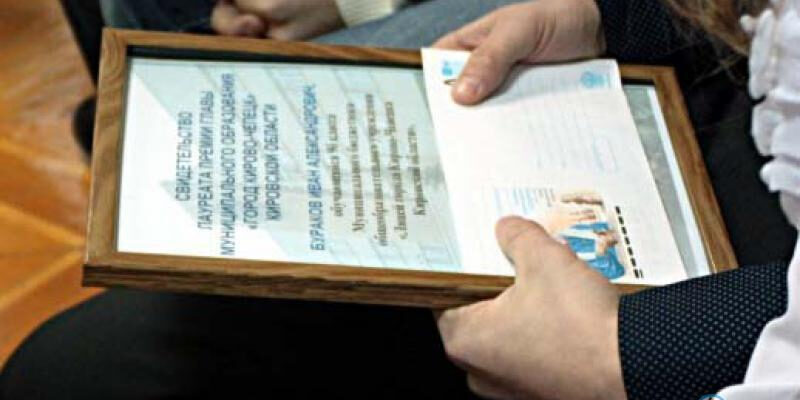 СВИДЕТЕЛЬСТВО
ЛАУРЕАТА ПРЕМИИ ГЛАВЫ
МУНИЦИПАЛЬНОГО ОБРАЗОВАНИЯ
«ГОРОД КИРОВО-ЧЕПЕЦК»
КИРОВСКОЙ ОБЛАСТИ
БУРАКОВ ИВАН АЛЕКСАНДРОВИЧ,
обучающийся 9б класса
Муниципального бюджетного
общеобразовательного учреждения
«Лицей города Кирово-Чепецка
Кировской области»